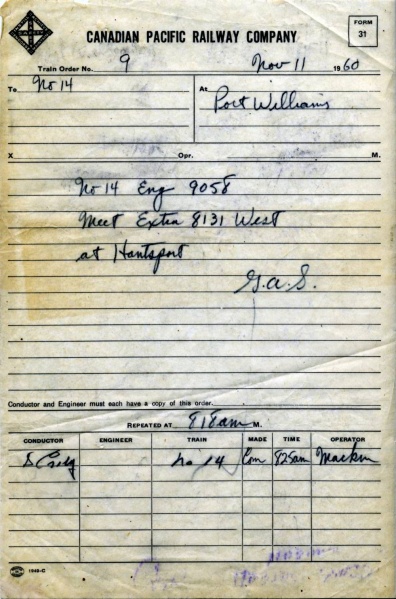 CANADIAN PACIFIC RAILWAY COMPANY
FORM
31
Train Order No. 9 Nov 11 1960
To No 14 At Port Williams
X Opr. M.
No 14 Eng 9058
Meet Extra 8131 West
at Hantsport
G.A.S.
Conductor and Engineer must each have a copy of this order.
REPEATED AT 818am M.
CONDUCTOR ENGINEER TRAIN MADE TIME OPERATOR
No 14 Com 825am
1948-C